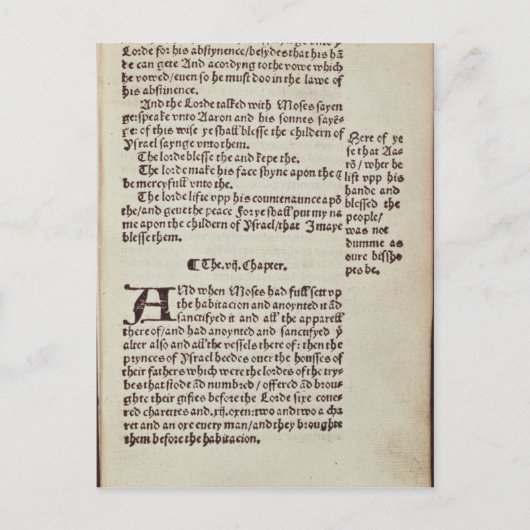 Lorde for his abstynence/besydes that his hā
de can gete And acordyng to the vowe which
he vowed/even so he must doo in the lawe of
his abstinence.
And the Lorde talked with Moses sayen
ge: speake vnto Aaron and his sonnes sayē-
ge: of this wise ye shall blesse the childern of
Ysrael saynge vnto them.
The lorde blesse the and kepe the.
The lorde make his face shyne apon the ⁊
be mercyfull vnto the.
The lorde lifte vpp his countenaunce apō
the/and geue the peace For ye shall put my na
me apon the childern of Ysrael/that I maye
blesse them.
Here of ye
se that Aa-
rō/wher he
lift vpp his
hande and
blessed the
people/
was not
dumme as
oure bissho
pes be.
¶ The.vij.Chapter.
AND when Moses had full sett vp
the habitacion and anoynted it ād
sanctifyed it and all the apparell
there of/and had anoynted and sanctifyed yͤ
alter also and all the vessels there of: then the
prynces of Ysrael heedes ouer the housses of
their fathers which were the lordes of the try-
bes that stode ād numbred/offered ād brou-
ghte their giftes before the Lorde sixe coue-
red charettes and.xij.oxen: two and two a cha
ret and an oxe euery man/and they broughte
them before the habitacion.